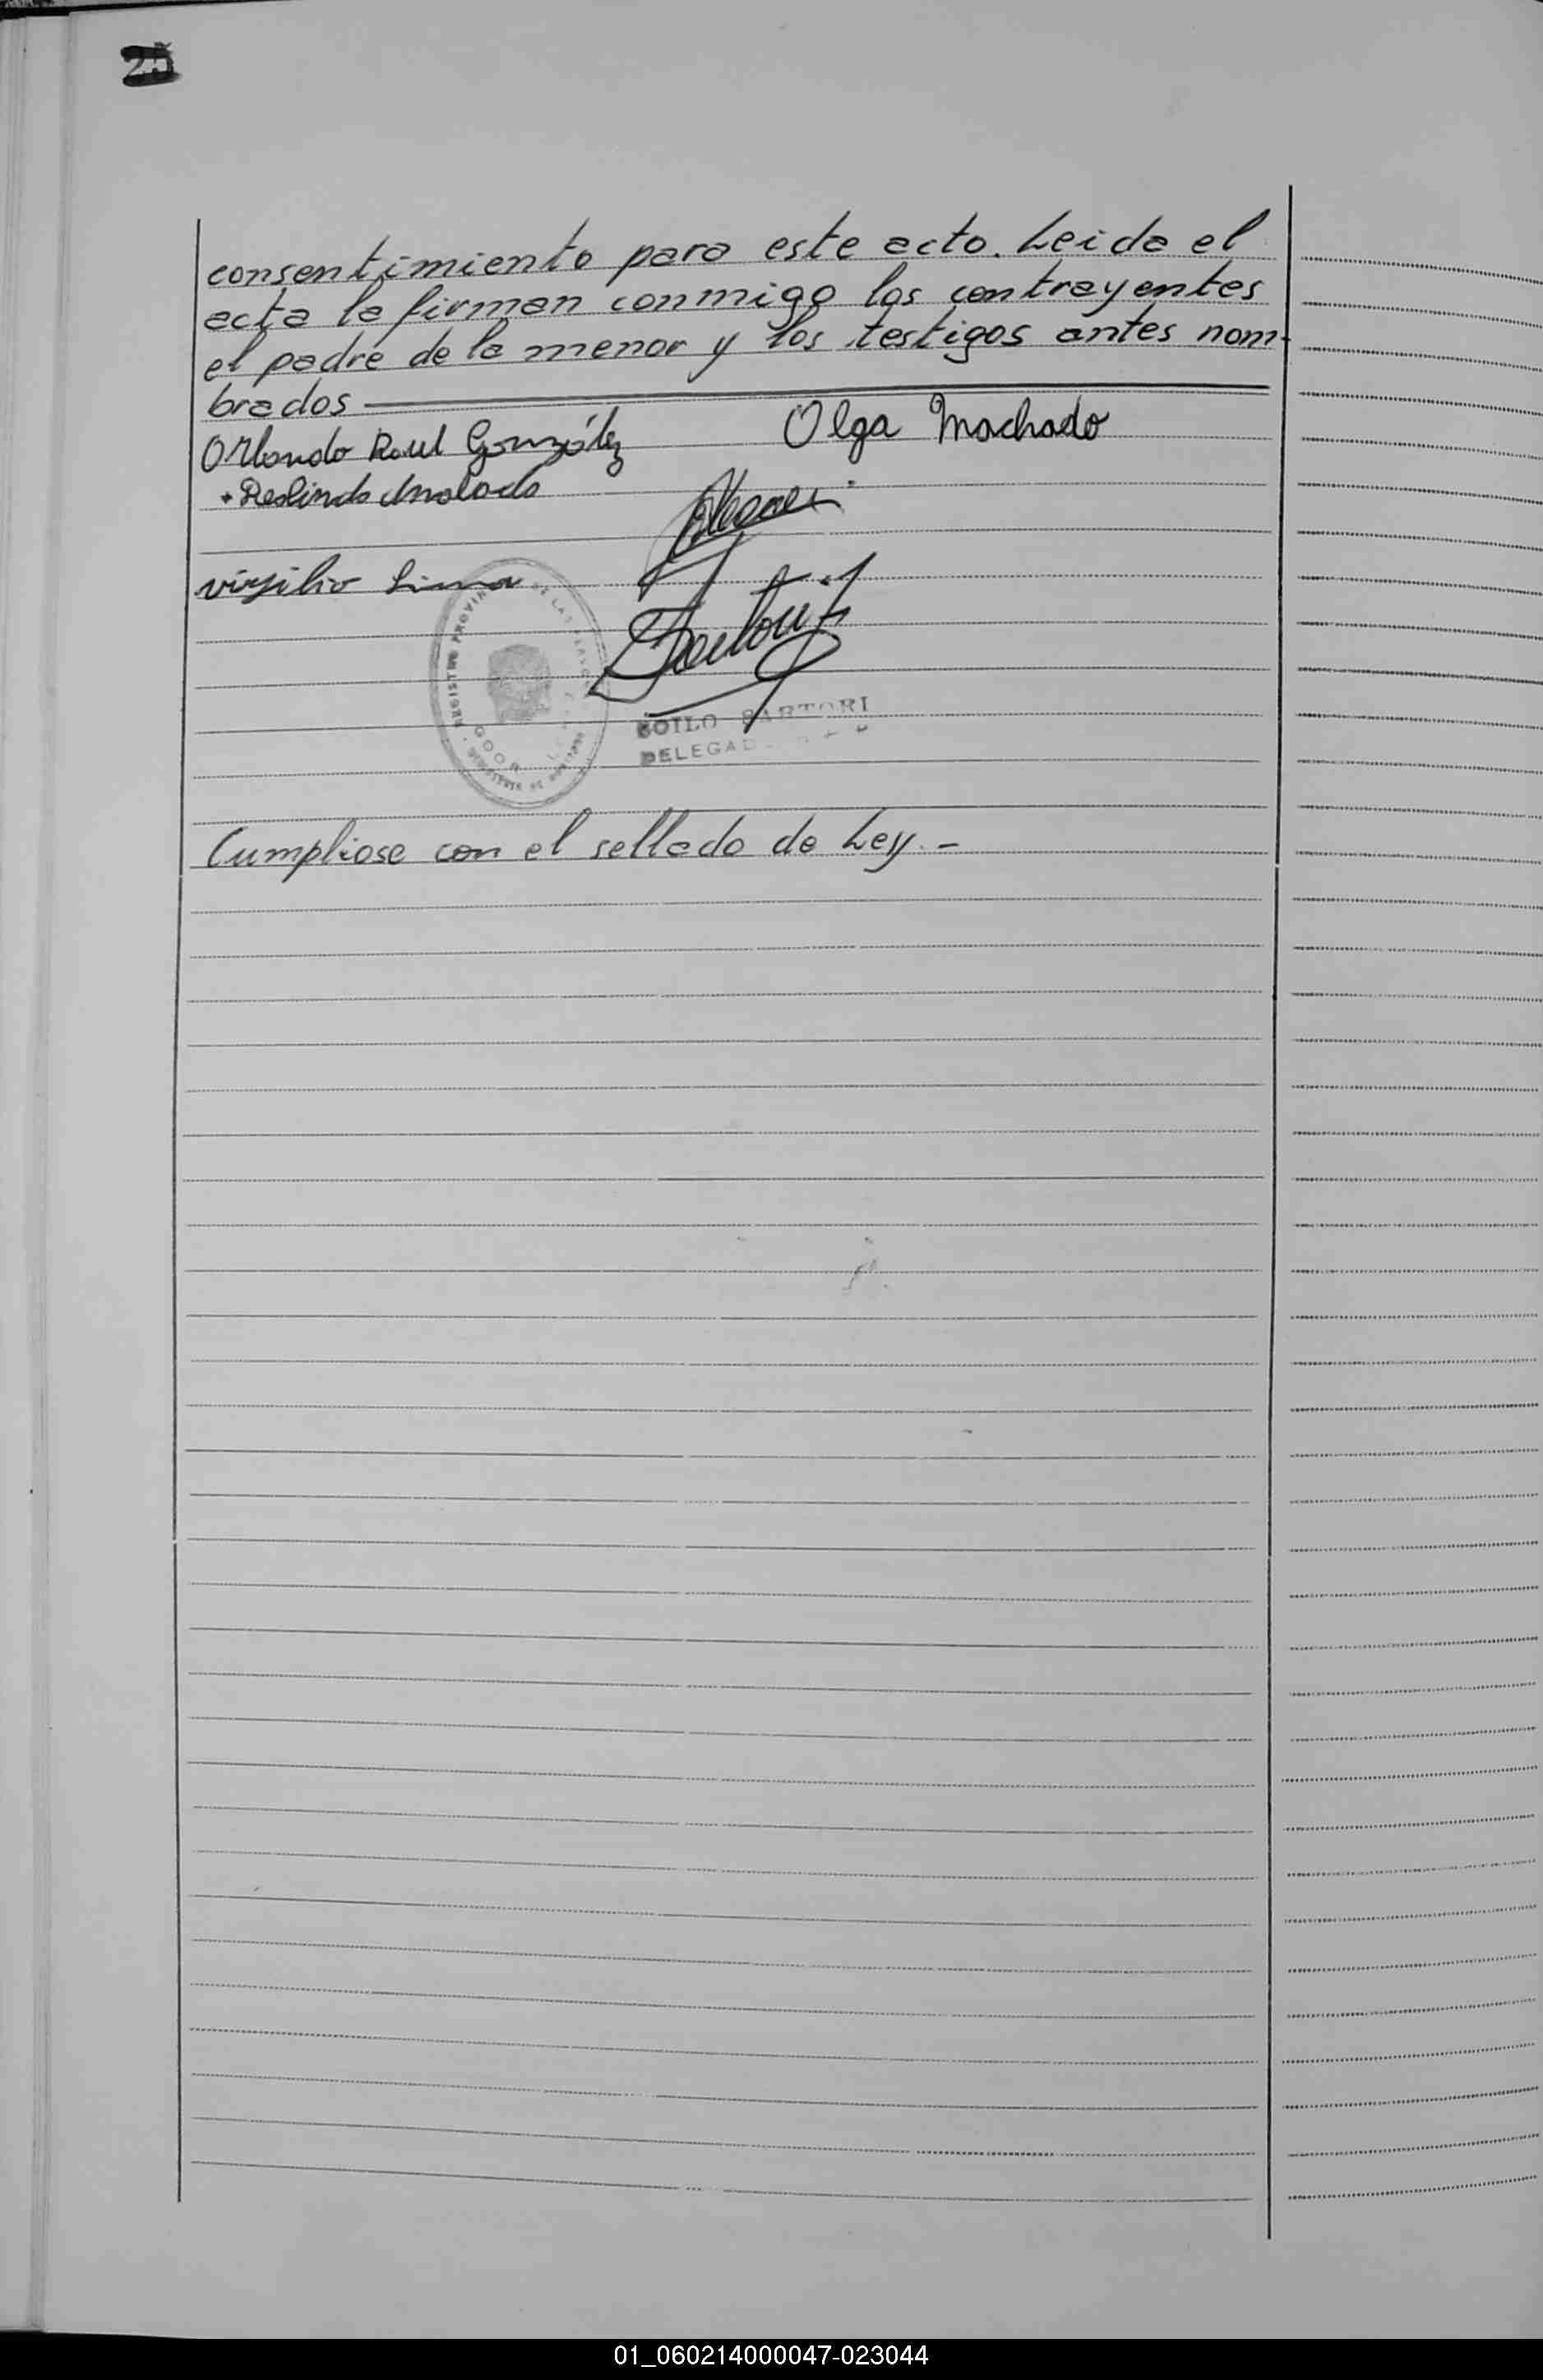 25
consentimiento para este acto. Leida el
acta la firman conmigo los contrayentes
el padre de la menor y los testigos antes nom-
brados
Orlando Raul González Olga Machado
virgilio Lima
REGISTRO PROVIN DE LAS PERSO
ZOILO SARTORI
DELEGAD
Cumpliose con el sellado de Ley.-
01_060214000047-023044